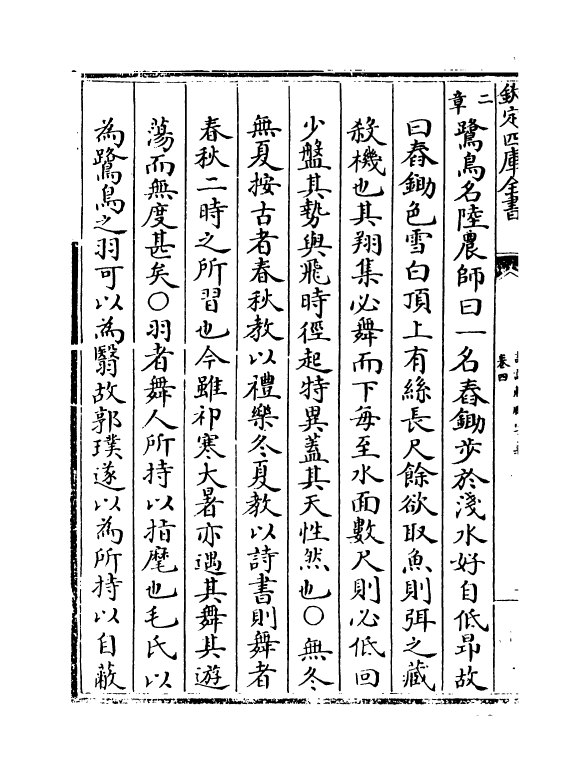 欽定四庫全書
卷四
二章鷺鳥名陸農師曰一名舂鋤步於淺水好自低昂故
曰舂鋤色雪白頂上有絲長尺餘欲取魚則弭之藏
殺機也其翔集必舞而下每至水面數尺則必低回
少盤其勢與飛時徑起特異蓋其天性然也○無冬
無夏按古者春秋教以禮樂冬夏教以詩書則舞者
春秋二時之所習也今雖祁寒大暑亦遇其舞其遊
蕩而無度甚矣○羽者舞人所持以指麾也毛氏以
為鷺鳥之羽可以為翳故郭璞遂以為所持以自蔽